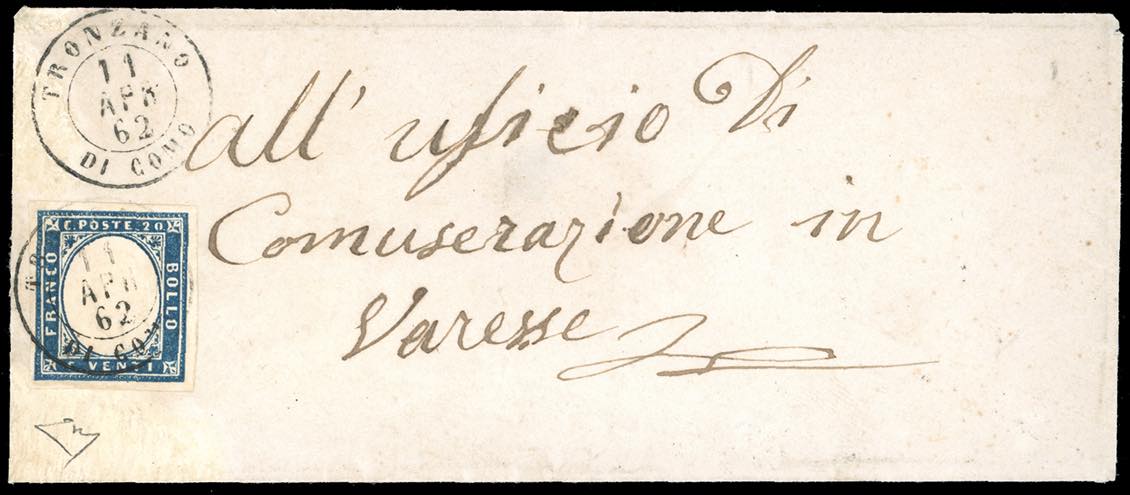 TRONZANO
11
APR
62
DI COMO
all' uficio Di
Comuserazione in
Varesse
C. POSTE 20
FRANCO
BOLLO
C. VENTI
11
APR
62
DI COM